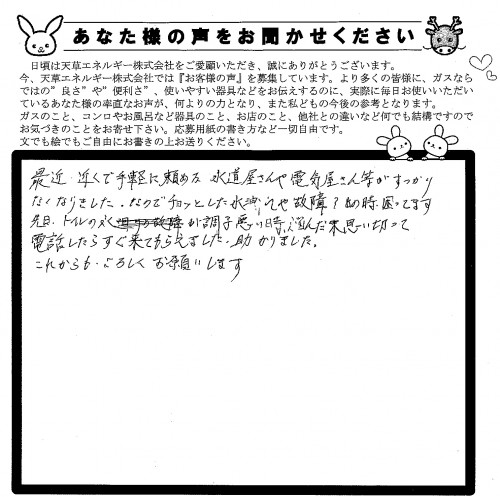 あなた様の声をお聞かせください
日頃は天草エネルギー株式会社をご愛顧いただき、誠にありがとうございます。
今、天草エネルギー株式会社では『お客様の声』を募集しています。より多くの皆様に、ガスなら
ではの”良さ”や”便利さ”、使いやすい器具などをお伝えするのに、実際に毎日お使いいただい
ているあなた様の率直なお声が、何よりの力となり、また私どもの今後の参考となります。
ガスのこと、コンロやお風呂など器具のこと、お店のこと、他社との違いなど何でも結構ですので
お気づきのことをお寄せ下さい。応募用紙の書き方など一切自由です。
文でも絵でもご自由にお書きの上お送りください。
最近、近くで手軽に頼める 水道屋さんや電気屋さん等がすっかり
なくなりました。なのでチョッとした水漏れや故障?の時困ってます
先日、トイレの が調子悪い時、悩んだ末思い切って
電話したらすぐ来てもらえました。助かりました。
これからも、よろしくお願いします